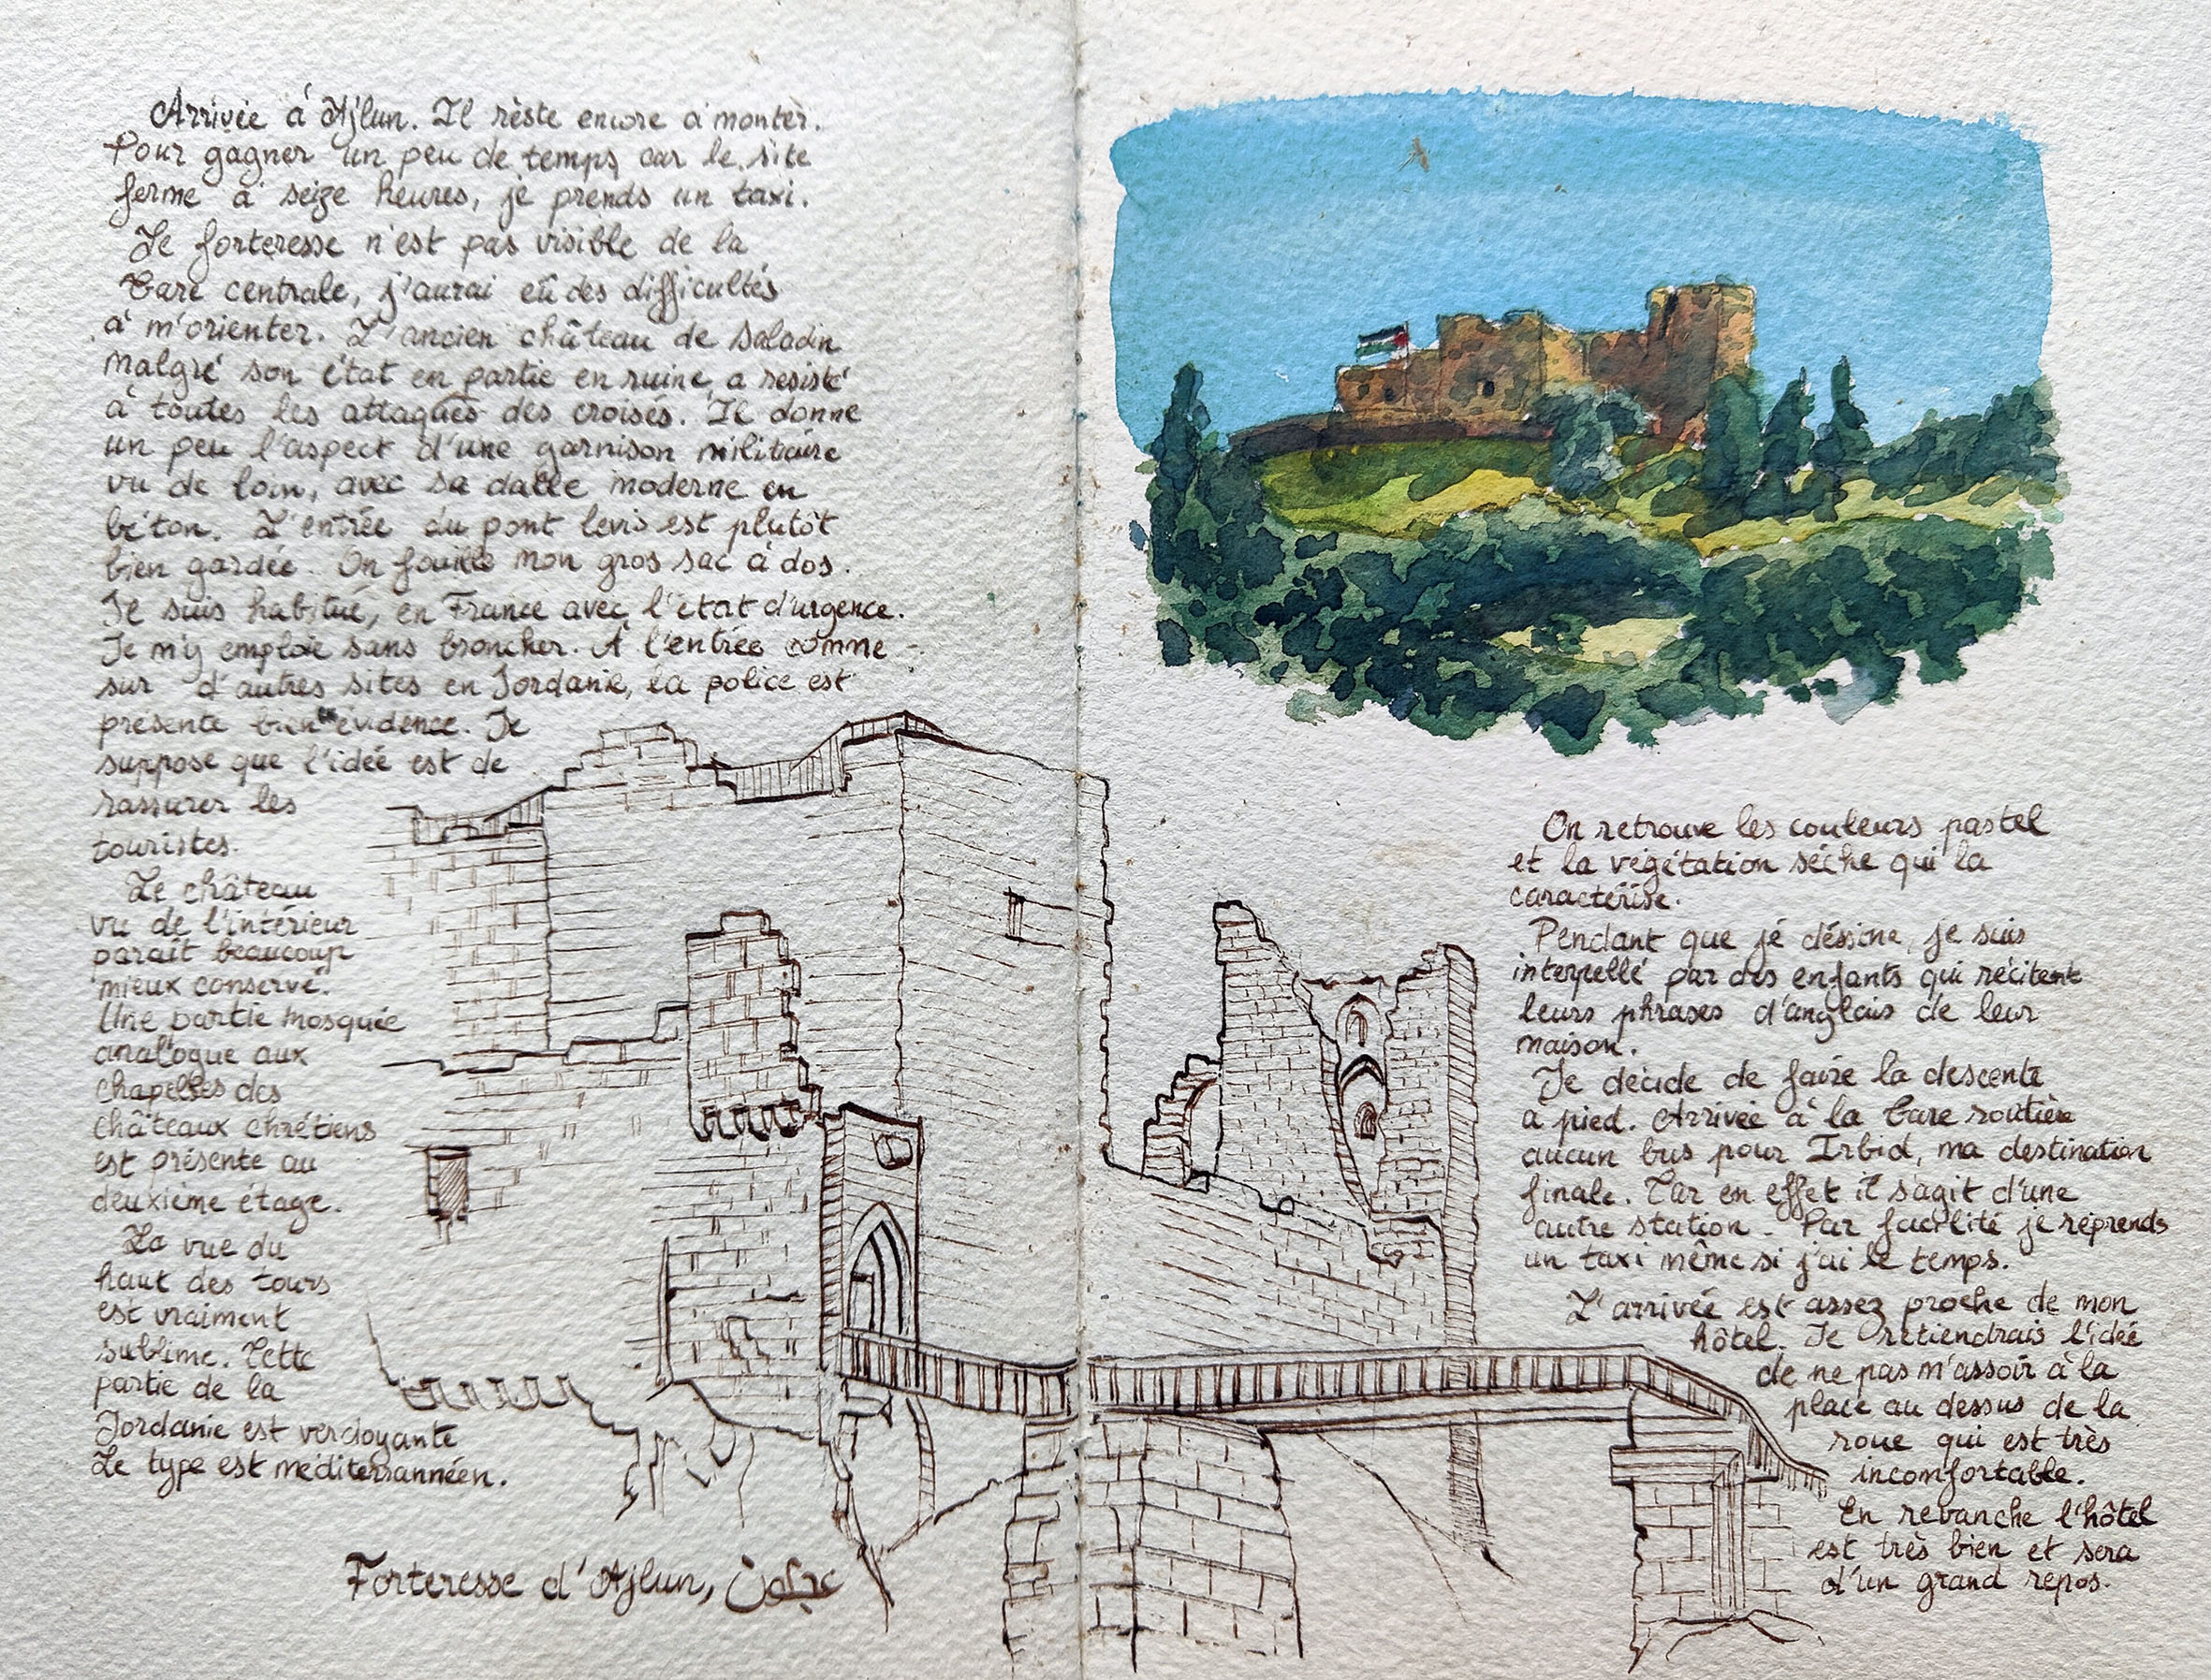 Arrivée à Ajlun. Il rèste encore à monter.
Pour gagner un peu de temps car le site
ferme à seize heures, je prends un taxi.
Le forteresse n'est pas visible de la
Gare centrale, j'aurai eû des difficultés
à m'orienter. L'ancien château de Saladin
malgré son état en partie en ruine, a resisté
à toutes les attaques des croisés. Il donne
un peu l'aspect d'une garnison militaire
vu de loin, avec sa dalle moderne en
béton. L'entrée du pont levis est plutôt
bien gardée. On fouille mon gros sac à dos.
Je suis habitué, en France avec l'état d'urgence.
Je m'y emploie sans broncher. A l'entrée comme
sur d'autres sites en Jordanie, la police est
présente bien en évidence. Je
suppose que l'idée est de
rassurer les
touristes.
Le château
vu de l'intérieur
paraît beaucoup
mieux conservé.
Une partie mosquée
analogue aux
chapelles des
châteaux chrétiens
est présente au
deuxième étage.
La vue du
haut des tours
est vraiment
sublime. Cette
partie de la
Jordanie est verdoyante
Le type est méditerrannéen.
Forteresse d'Ajlun, عجلون
On retrouve les couleurs pastel
et la végétation sèche qui la
caractérise.
Pendant que je déssine, je suis
interpellé par des enfants qui récitent
leurs phrases d'anglais de leur
maison.
Je décide de faire la descente
à pied. Arrivée à la Gare routière
aucun bus pour Irbid, ma destination
finale. Car en effet il s'agit d'une
autre station. Par facilité je reprends
un taxi même si j'ai le temps.
L'arrivée est assez proche de mon
hôtel. Je retiendrais l'idée
de ne pas m'assoir à la
place au dessus de la
roue qui est très
incomfortable.
En revanche l'hôtel
est très bien et sera
d'un grand repos.